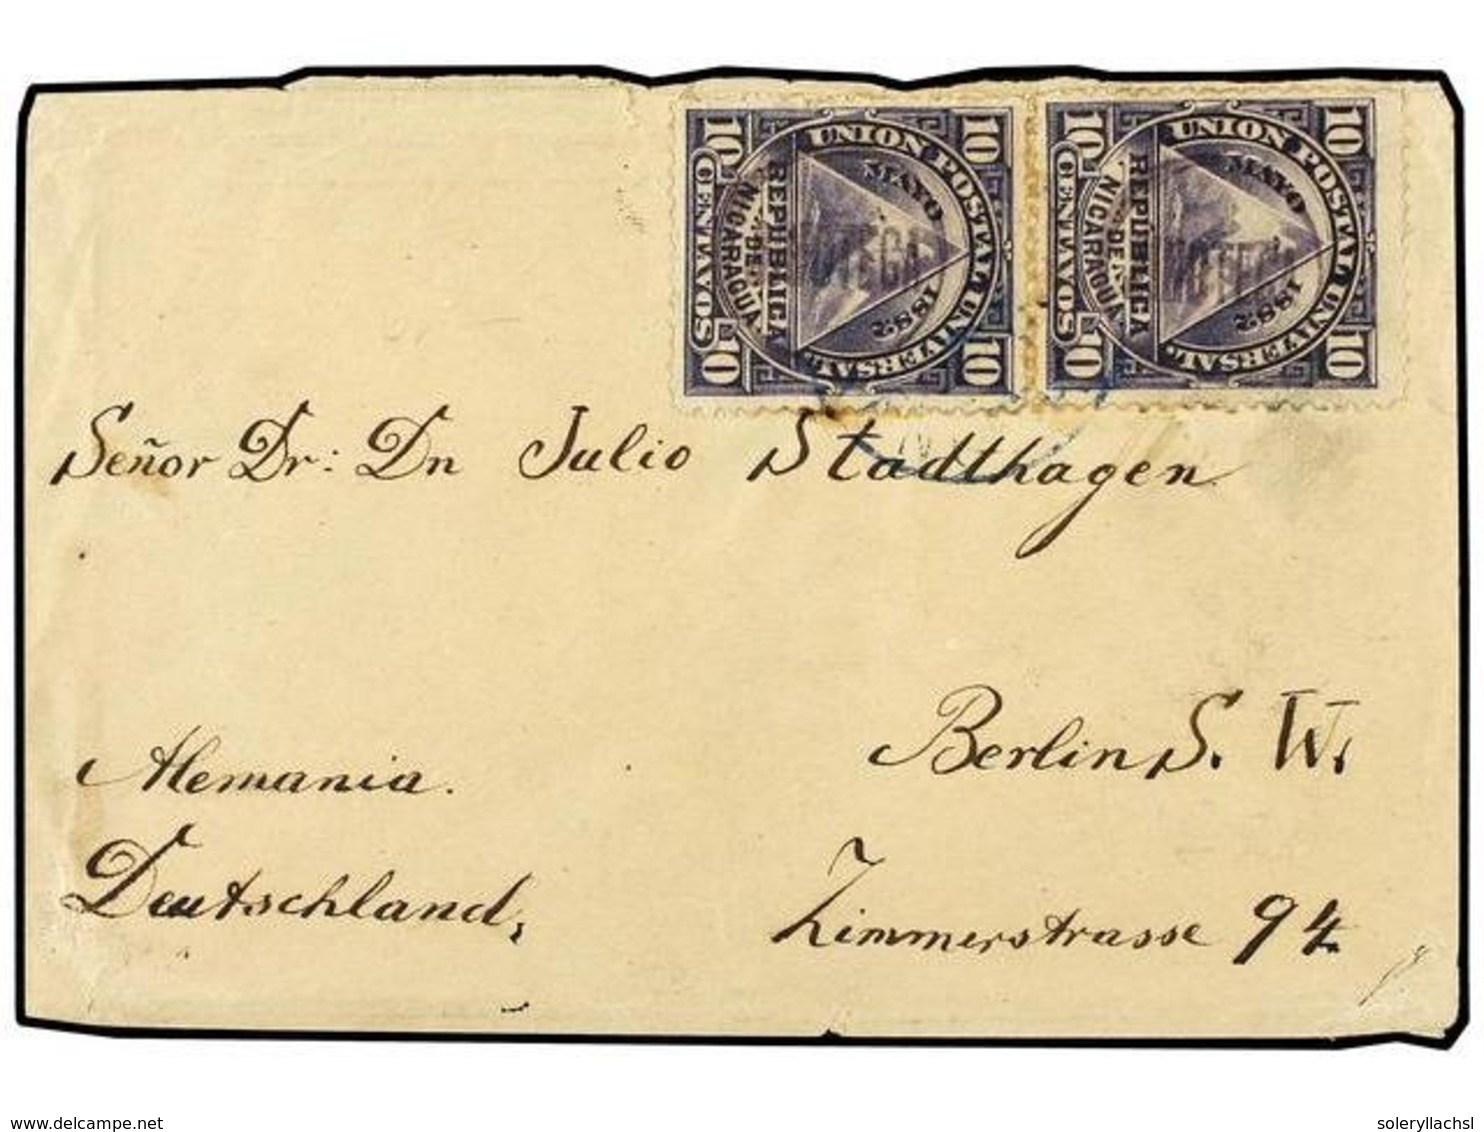 UNION POSTAL UNIVERSAL
MAYO 1882
REPUBLICA
DE
NICARAGUA
10 CENTAVOS 10
10 10
UNION POSTAL UNIVERSAL
MAYO 1882
REPUBLICA
DE
NICARAGUA
10 CENTAVOS 10
10 10
Señor Dr: Dn Julio Stadthagen
Berlin S. W.
Alemania.
Deutschland,
Zimmerstrasse 94
www.delcampe.net
soleryllachsl